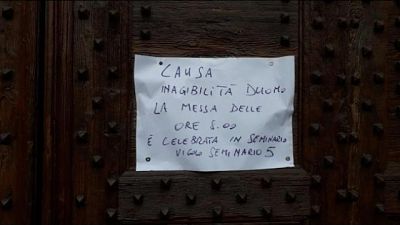 CAUSA
INAGIBILITÀ DUOMO
LA MESSA DELLE
ORE 8.00
È CELEBRATA IN SEMINARIO
VICOLO SEMINARIO 5